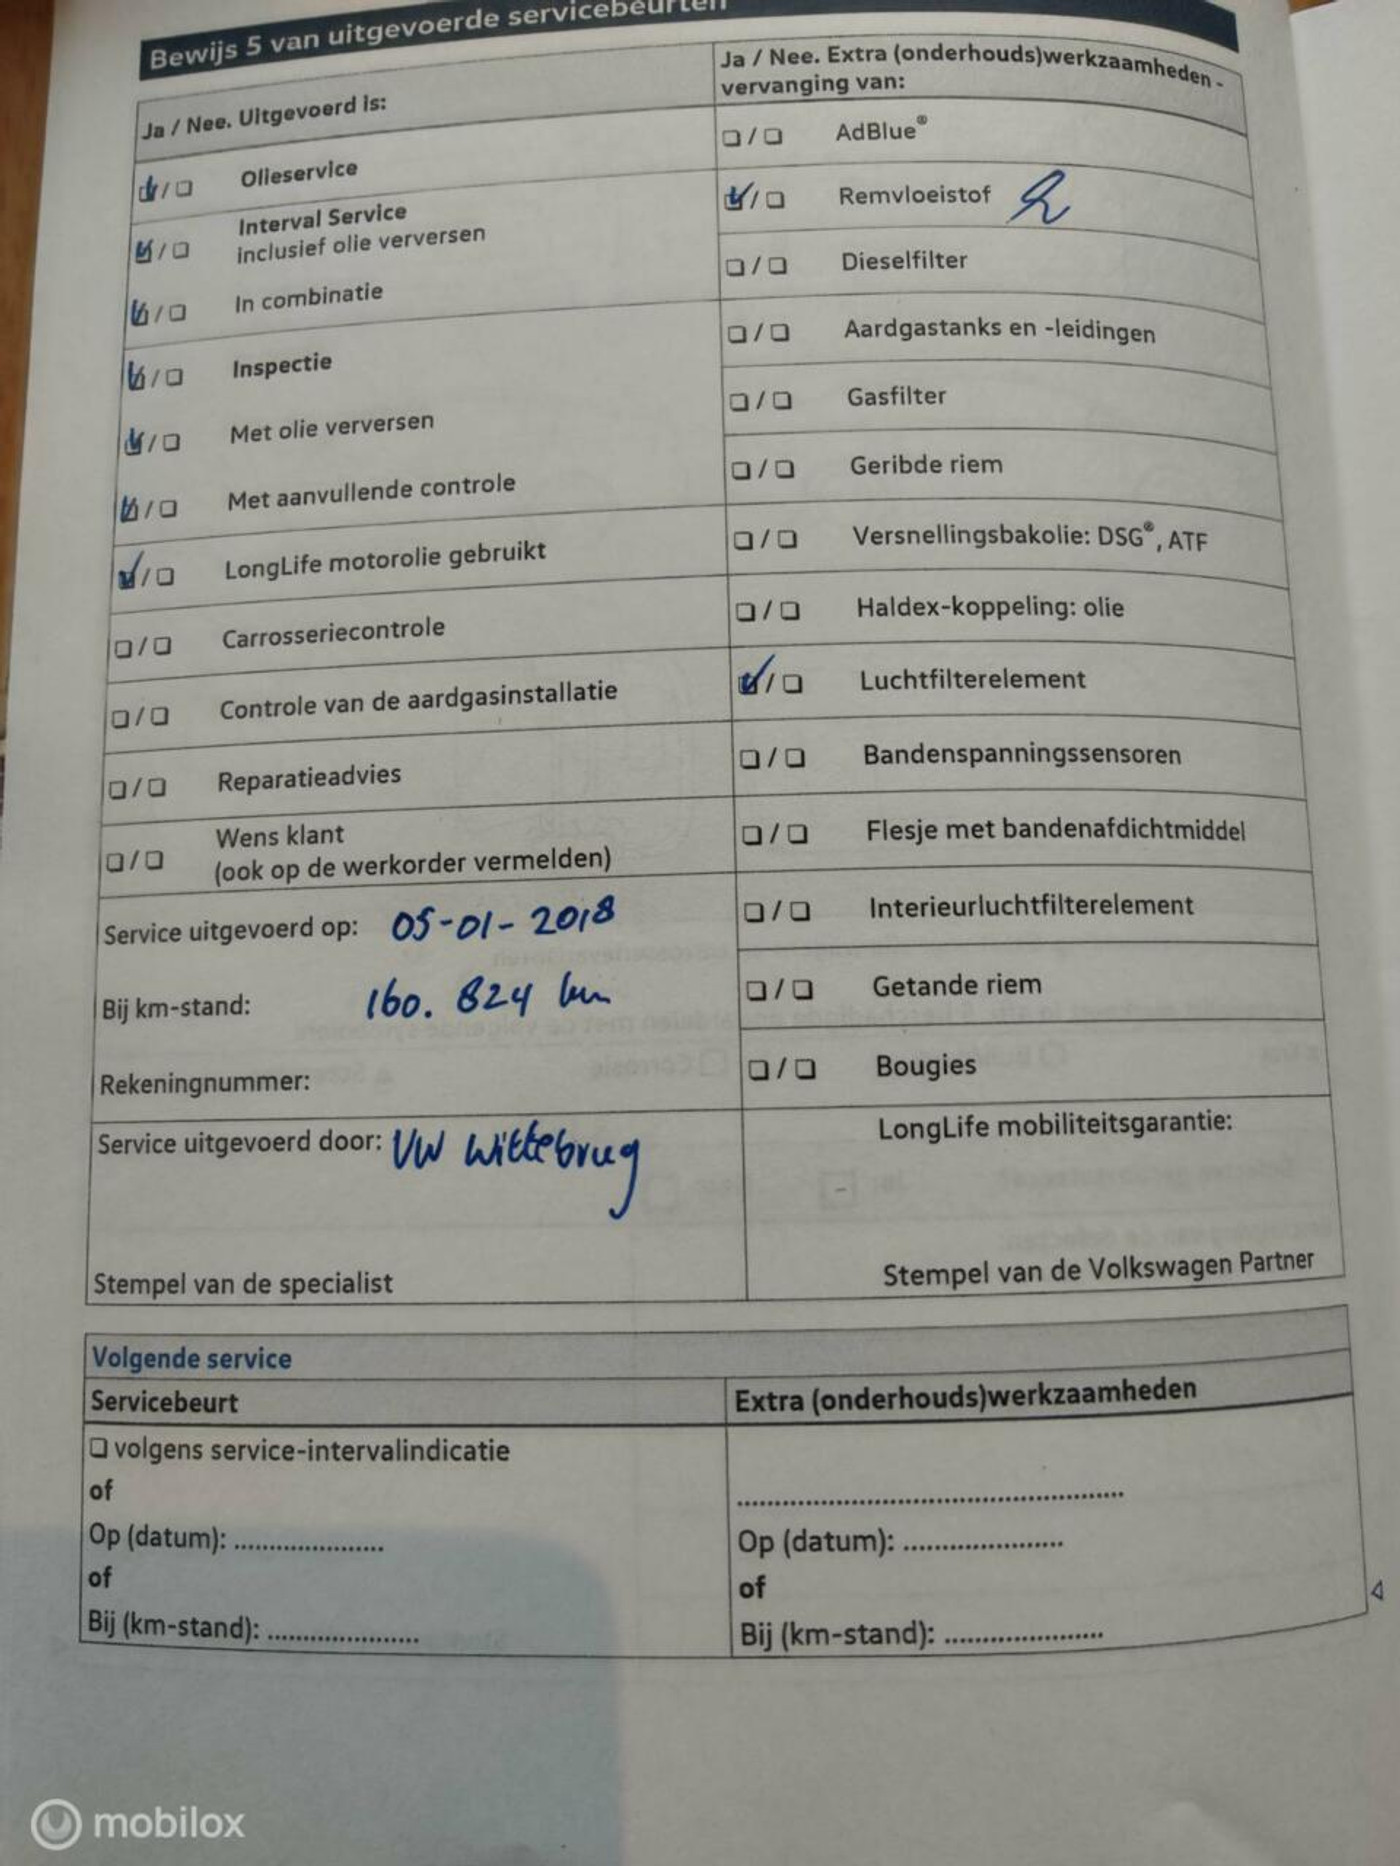 Bewijs 5 van uitgevoerde servicebeurten
Ja / Nee. Uitgevoerd is:
Olieservice
Interval Service
inclusief olie verversen
In combinatie
Inspectie
Met olie verversen
Met aanvullende controle
LongLife motorolie gebruikt
Carrosseriecontrole
Controle van de aardgasinstallatie
Reparatieadvies
Wens klant
(ook op de werkorder vermelden)
Service uitgevoerd op: 05-01-2018
Bij km-stand: 160.824 km
Rekeningnummer:
Service uitgevoerd door: VW Wittebrug
Stempel van de specialist
Ja / Nee. Extra (onderhouds)werkzaamheden -
vervanging van:
AdBlue®
Remvloeistof
Dieselfilter
Aardgastanks en -leidingen
Gasfilter
Geribde riem
Versnellingsbakolie: DSG®, ATF
Haldex-koppeling: olie
Luchtfilterelement
Bandenspanningssensoren
Flesje met bandenafdichtmiddel
Interieurluchtfilterelement
Getande riem
Bougies
LongLife mobiliteitsgarantie:
Stempel van de Volkswagen Partner
Volgende service
Servicebeurt
volgens service-intervalindicatie
of
Op (datum): ....................
of
Bij (km-stand): ....................
Extra (onderhouds)werkzaamheden
..................................................
Op (datum): ....................
of
Bij (km-stand): ....................
mobilox